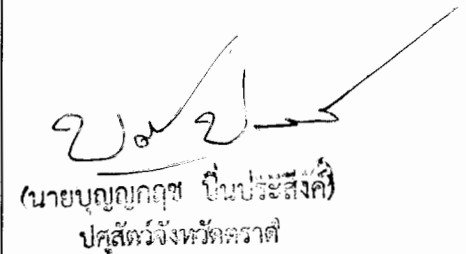 (นายบุญญกฤช ปิ่นประสงค์)
ปศุสัตว์จังหวัดตราด